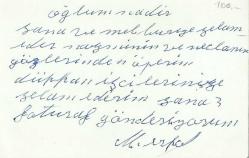 100,-
oğlum nadir
sana ve mebbureye selam
eder nazmının ve neclanın
gözlerinden öperim
dükkan işcilerinizze
selam ederim sana 3
fatura gönderiyorum
M.